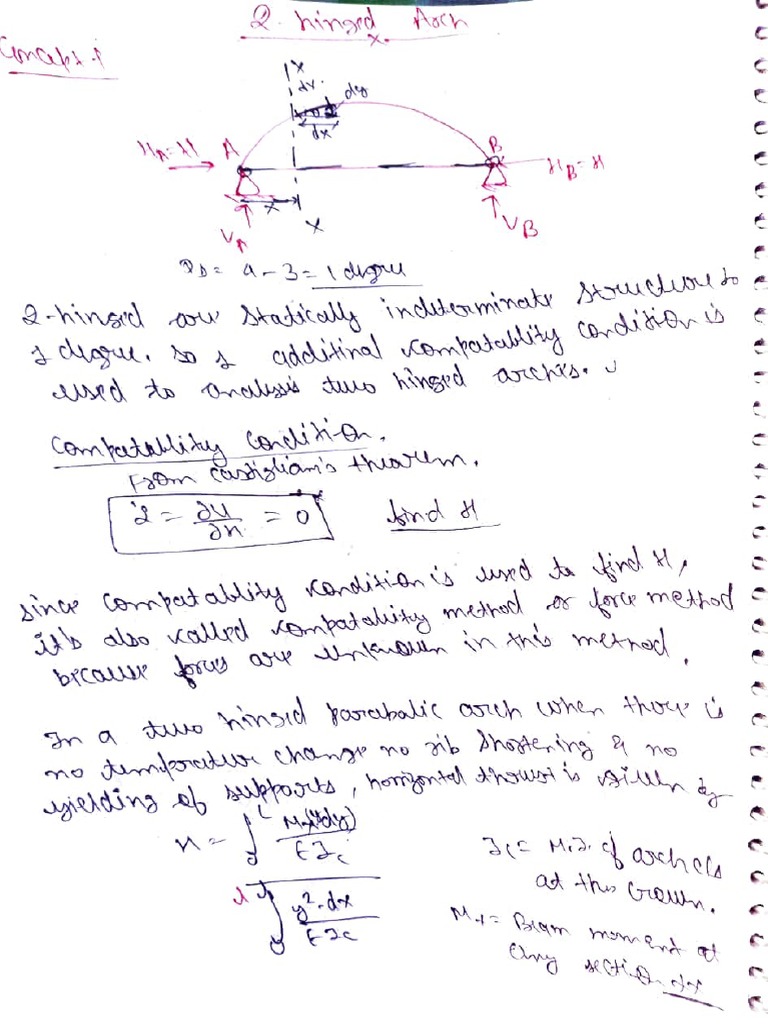 2-hinged Arch
Concept:-
X
dy
ds
dx
H_A=H
A
B
H_B=H
x
X
V_A
V_B
D_s= 4-3=1 degree
2-hinged are statically indeterminate structure to
1 degree. so 1 additinal compatablity condition is
used to analysis two hinged arches.
Compatablity condition.
From castiglian's theorem.
= ∂u/∂H = 0 find H
since compatablity condition is used to find H,
it's also called compatablity method or force method
because forces are unknown in this method.
In a two hinged parabalic arch when there is
no temperature change no rib shortening & no
yielding of supports, horizontal thrust is given by
H = ∫
0
EI_c
∫ y².dx
0 EI_c
I_c = M.I. of arch c/s
at the crown.
M_x = Beam moment at
any section xx